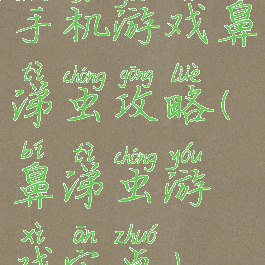 手机游戏鼻
tì chóng gōng lüè
涕虫攻略(
bí tì chóng yóu
鼻涕虫游
xì ān zhuó
戏安卓)